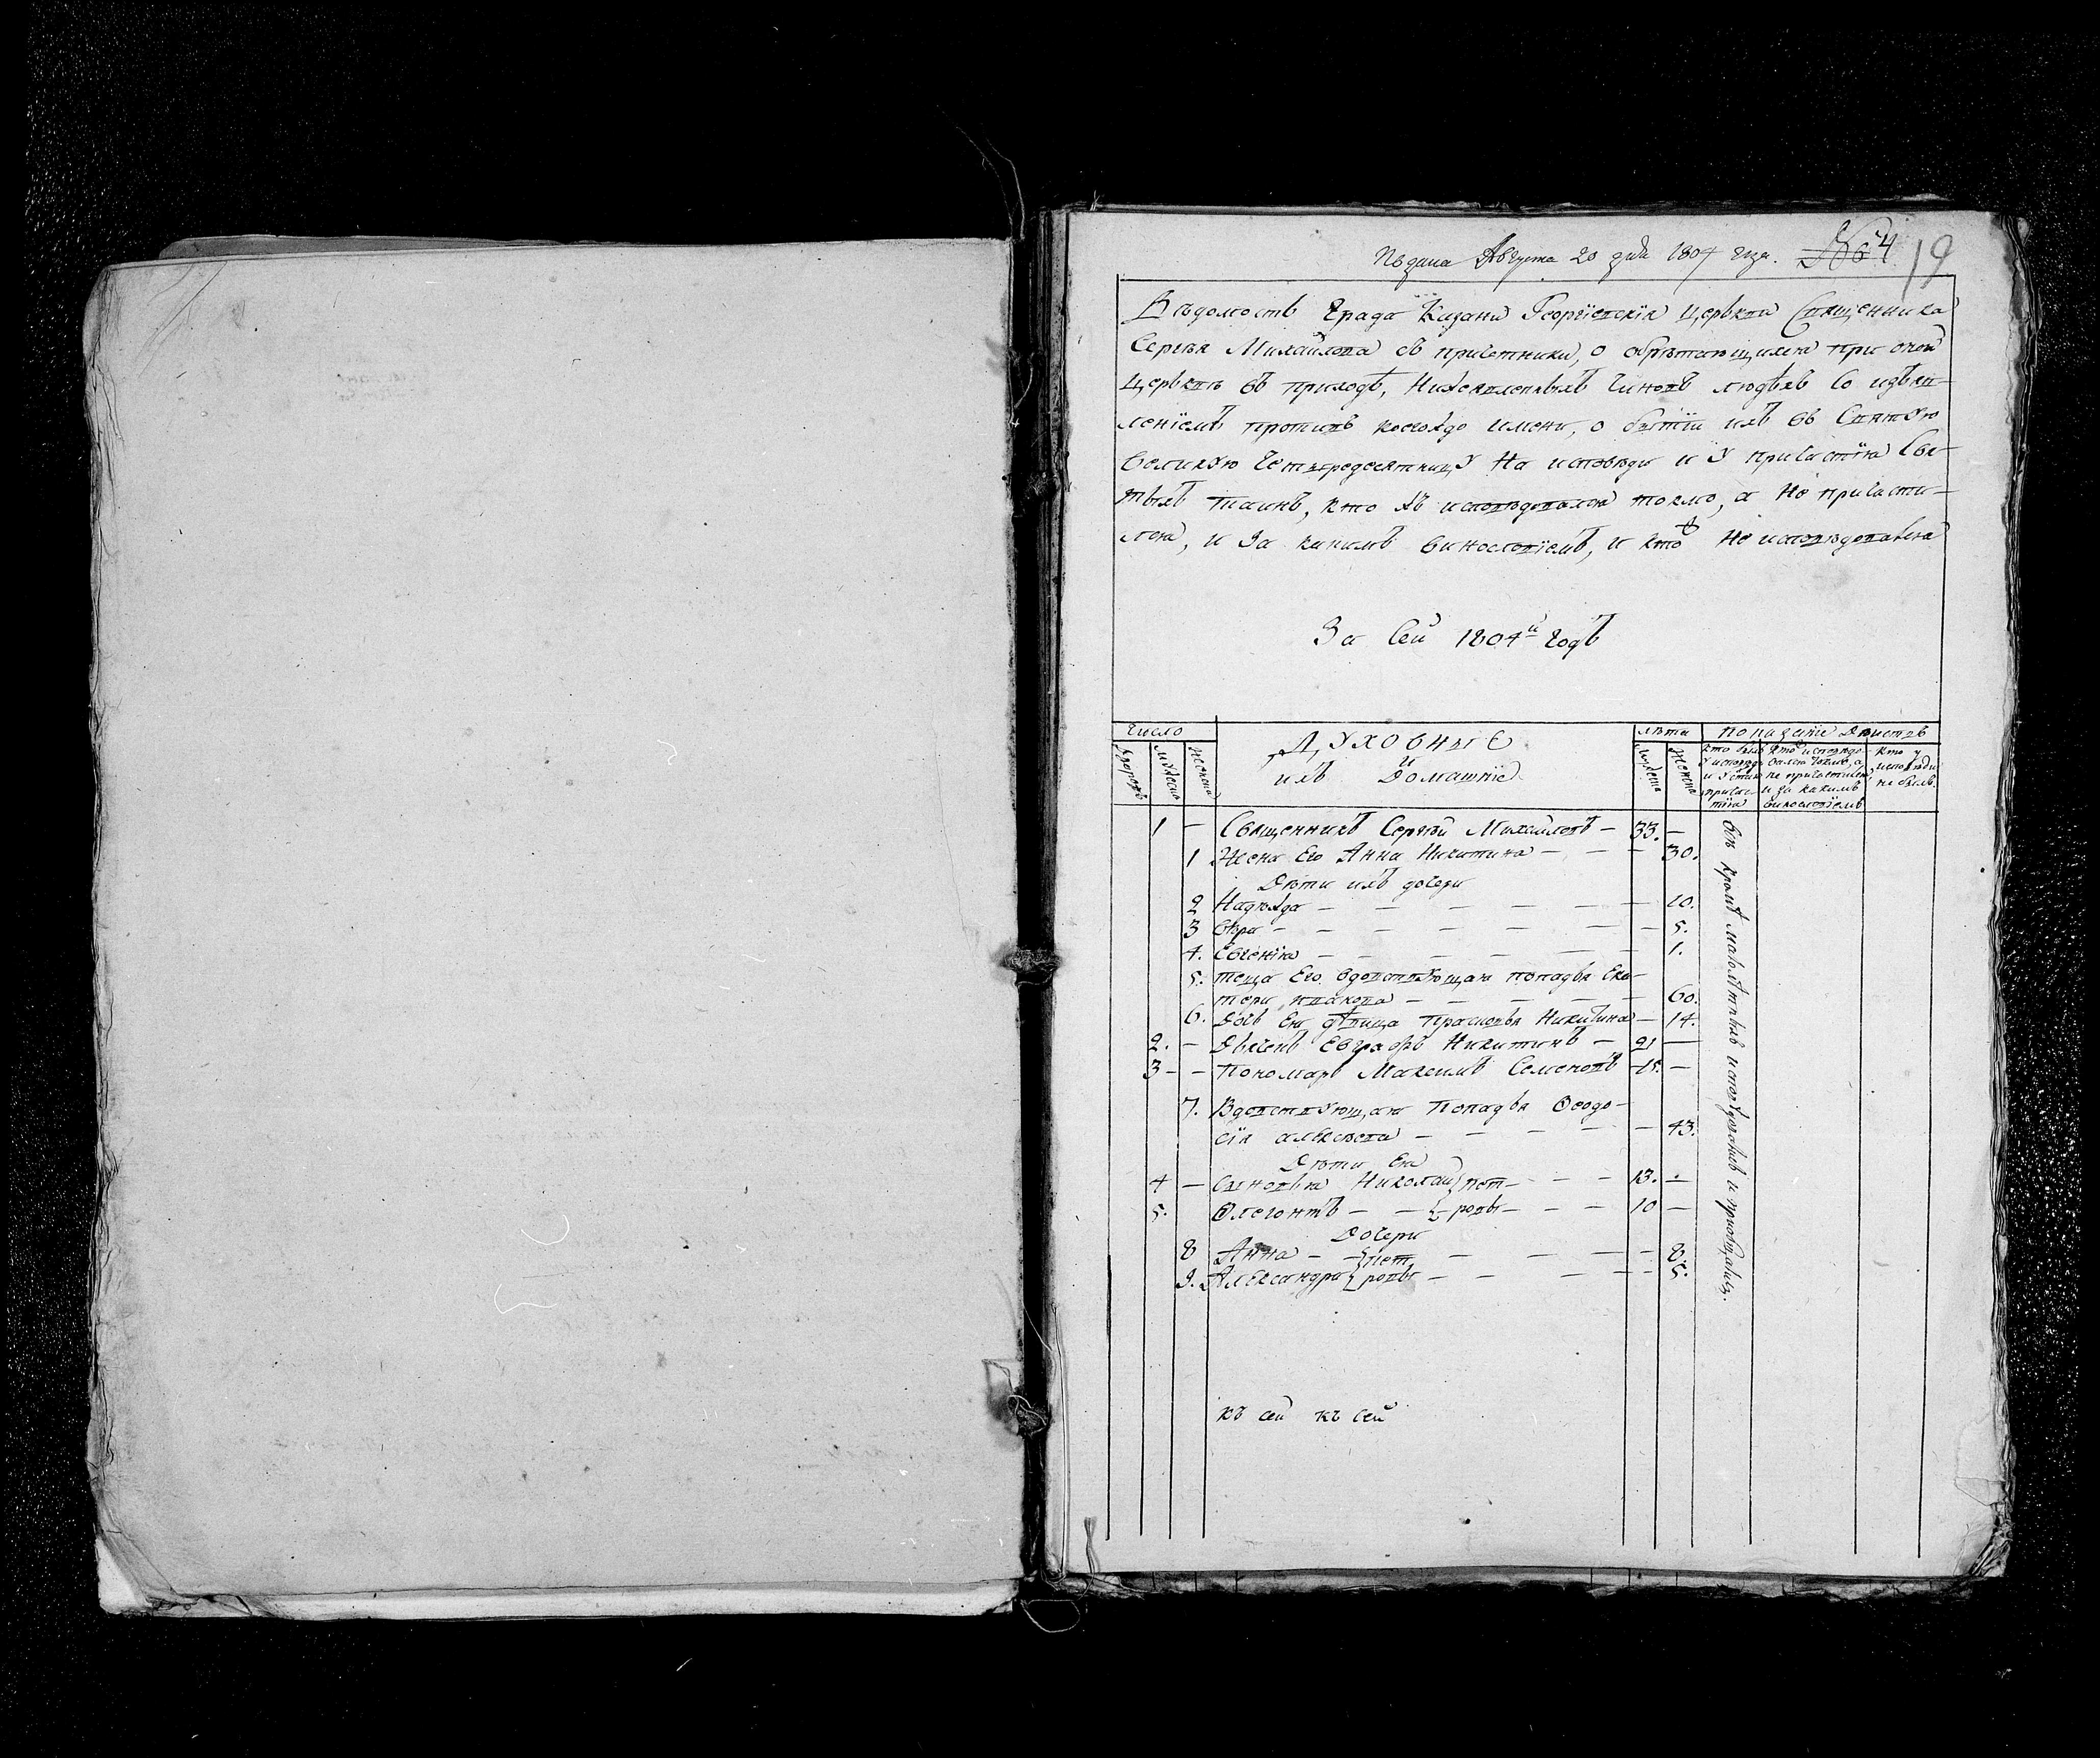 Подана Августа 20 дня 1804 года. 4
19
Вѣдомость Града Казани Георгіевскія Церкви Священника
Сергѣя Михайлова съ причетники, о обрѣтающихся при оной
Церквѣ въ приходѣ, Нижеявленныхъ Чиновъ людѣхъ Со изъяв-
леніемъ противъ коегождо имени, о бытіи ихъ въ Святую
Великую Четыредесятницу На исповѣди и У причастія Свя-
тыхъ таинъ, кто жъ исповѣдовался токмо, а Не причасти-
лся, и За какимъ винословіемъ, и кто Не исповѣдовался
За Сей 1804й Годъ
Число
Дворовъ
Мужеска
Женска
Духовныѣ
и
ихъ Домашнія
лѣта
мужеска
Женска
Показаніе Дѣиствъ
Кто былъ у исповѣди и у Святаго причастія
Кто исповѣдовался токмо, а не причастился, и за какимъ винословіемъ
Кто у исповѣди не былъ.
1 — Священникъ Сергѣй Михайловъ — 33. —
1 Жена Его Анна Никитина — — — 30.
Дѣти ихъ дочери
2 Надѣжда — — — — — — 10.
3 Вѣра — — — — — — — 5.
4. Евгенія — — — — — — 1.
5. теща Его вдовствующая попадья Ека-
тери — — — — — 60.
6. Дочь Ея дѣвица Прасковья Никитина — 14.
2. — Дьячекъ Евграфъ Никитинъ — 21 —
3 — — Пономарь Максимъ Семеновъ — 15. —
7. Вдовствующая Попадья Ѳеодо-
сія алексѣева — — — — — — 43.
Дѣти Ея
4 — Сыновья Николай } пет — — — 13. —
5. Флегонтъ — — } ровы — — — 10 —
Дочери
8 Анна — — } пет — — — — 8.
9. Александра } ровы — — — — 5.
всѣ кромѣ малолѣтныхъ исповѣдовались и пріобщались.
къ сей къ сей